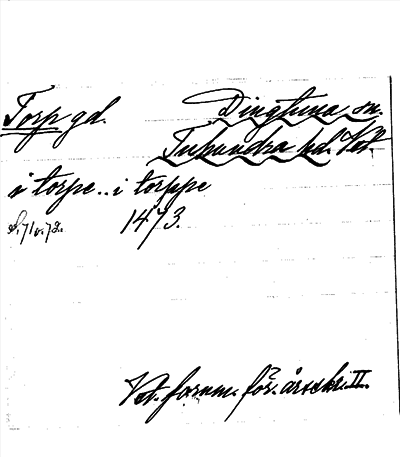 Torp gd. Dingtuna sn.
Tuhundra hd. Vstm
i torpe.. i torppe
S. 71 o. 72. 1473.
Vst. fornm. för. årsskr. II.